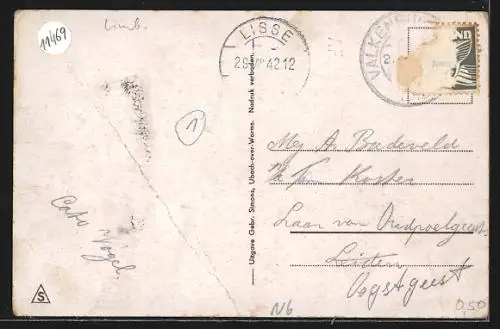 11469
Limb.
LISSE
VALKENBURG
ND
1
Uitgave Gebr. Simons, Ubach-over-Worms. Nadruk verboden.
Mej A. Bredeveld
Fam Koster
Laan van Oudpoelgeest
Leiden
Oegstgeest
Cato Vogel.
S
N6
0,50